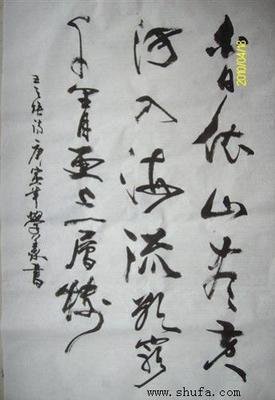 白日依山尽黄
河入海流欲窮
千里目更上一層樓
王之 诗 庚寅年 書
2010/04/18
www.shufa.com